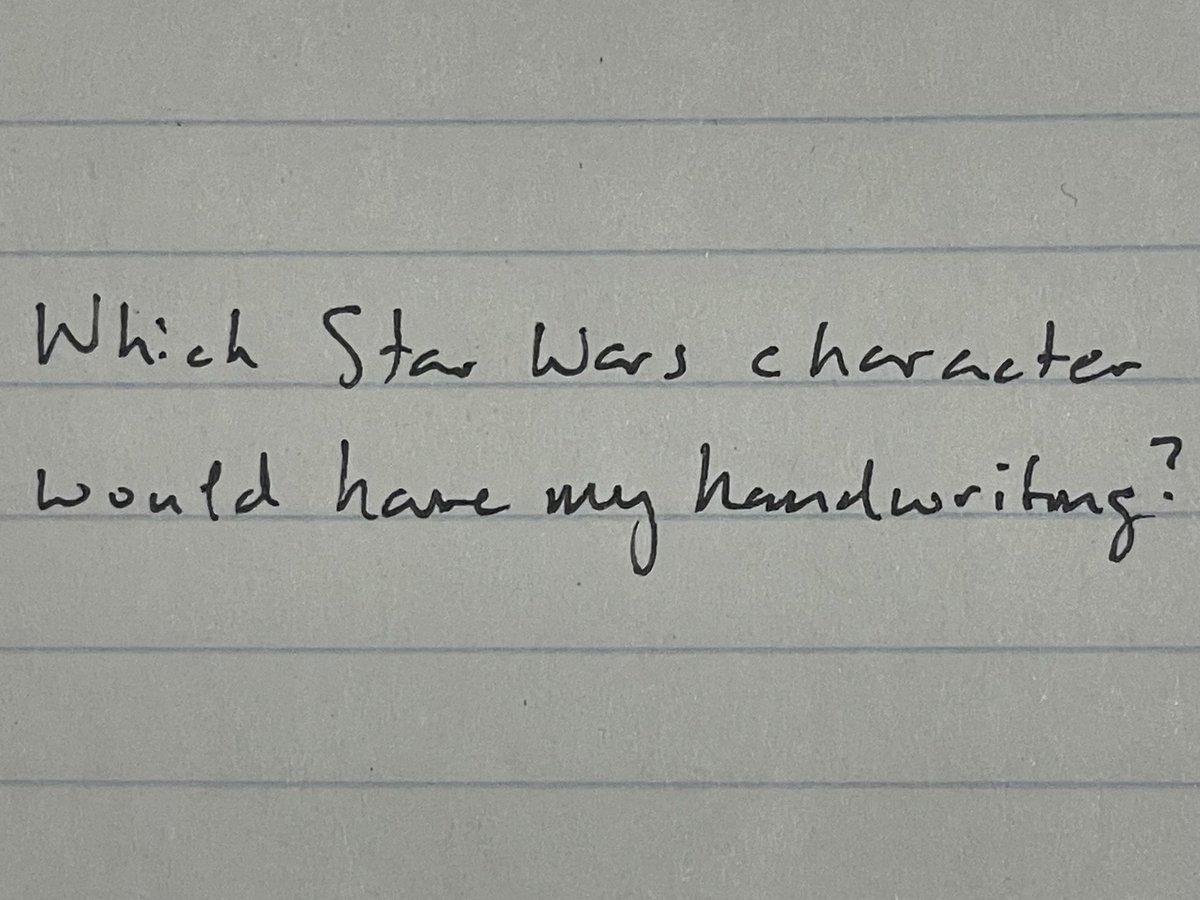 Which Star Wars character
would have my handwriting?